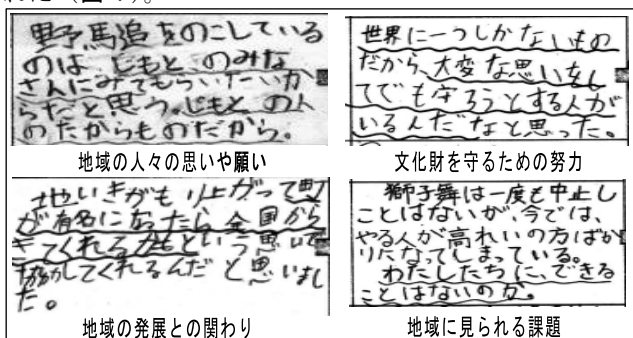 野馬追をのこしている
のは じもと のみな
さんにみてもらいたーいか
らだと思う。じもと の人
のたからものだから。
地域の人々の思いや願い
世界に一つしかないもの
だから、大変な思いをし
てでも守ろうとする人が
いるんだなと思った。
文化財を守るための努力
地いきがもり上がって町
が有名になったら全国から
きてくれるかもという思いで
協力してくれるんだと思いまし
た。
地域の発展との関わり
獅子舞は一度も中止し
ことはないが、今では、
やる人が高れいの方ばか
りになってしまっている。
わたしたちに、できる
ことはないのか。
地域に見られる課題